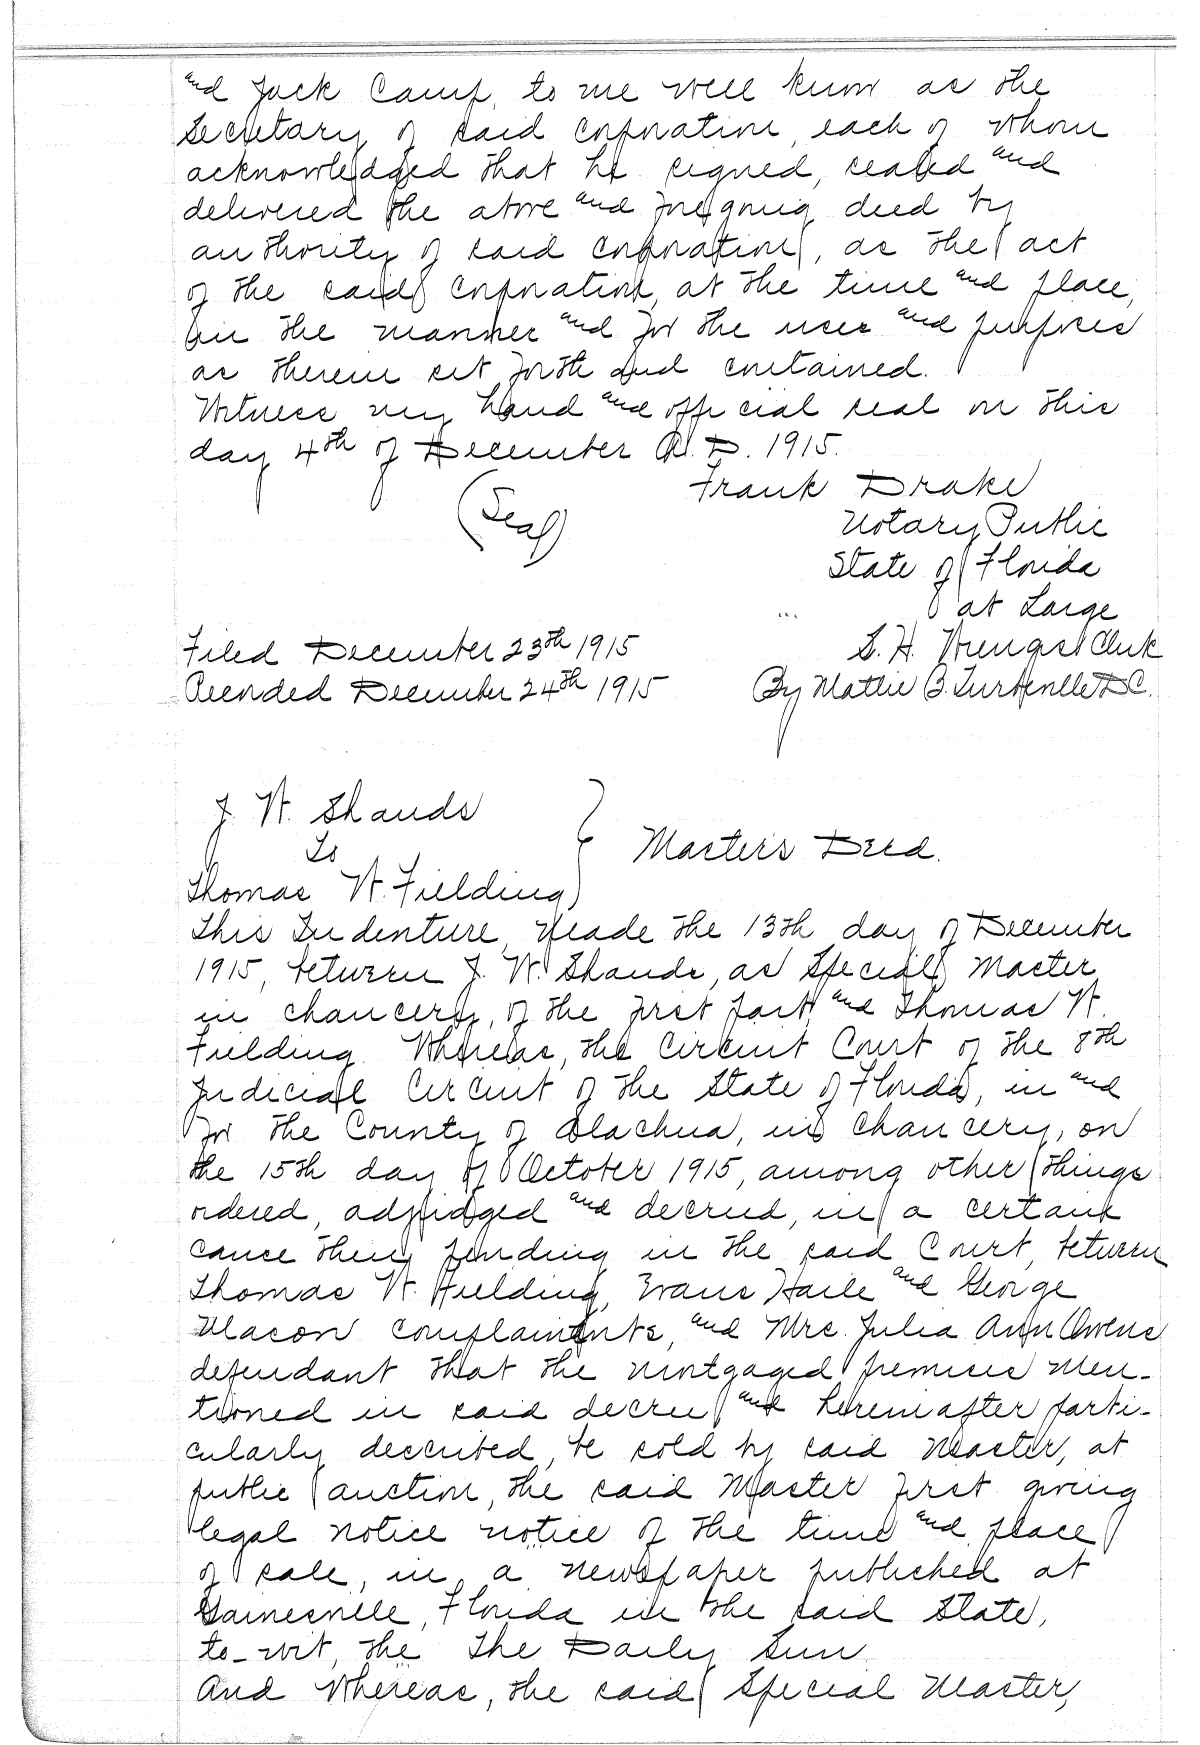 and Jack Camp, to me well know as the
Secretary of said corporation, each of whom
acknowledged that he signed, sealed and
delivered the above and foregoing deed by
authority of said corporation, as the act
of the said corporation, at the time and place,
in the manner and for the uses and purposes
as therein set forth and contained.
Witness my hand and official seal on this
day 4th of December A.D. 1915.
(Seal) Frank Drake
Notary Public
State of Florida
at Large
Filed December 23th 1915 S. H. Wienges Clerk
Recorded December 24th 1915 By Mattie B. Turbeville D.C.
J. W. Shands
To
Masters Deed.
Thomas W. Fielding
This Indenture, Made the 13th day of December
1915, between J. W. Shands, as Special Master
in chancery, of the first part, and Thomas W.
Fielding. Whereas, the Circuit Court of the 8th
Judicial Circuit of the State of Florida, in and
for the County of Alachua, in chancery, on
the 15th day of October 1915, among other things
ordered, adjudged and decreed, in a certain
cause then pending in the said Court, between
Thomas W. Fielding, Evans Haile and George
Macon complainants, and Mrs. Julia Ann Owens
defendant that the mortgaged premises men-
tioned in said decree and hereinafter parti-
cularly described, be sold by said Master, at
public auction, the said Master first giving
legal notice notice of the time and place
of sale, in a newspaper published at
Gainesville, Florida in the said State,
to-wit, the The Daily Sun
And Whereas, the said Special Master,